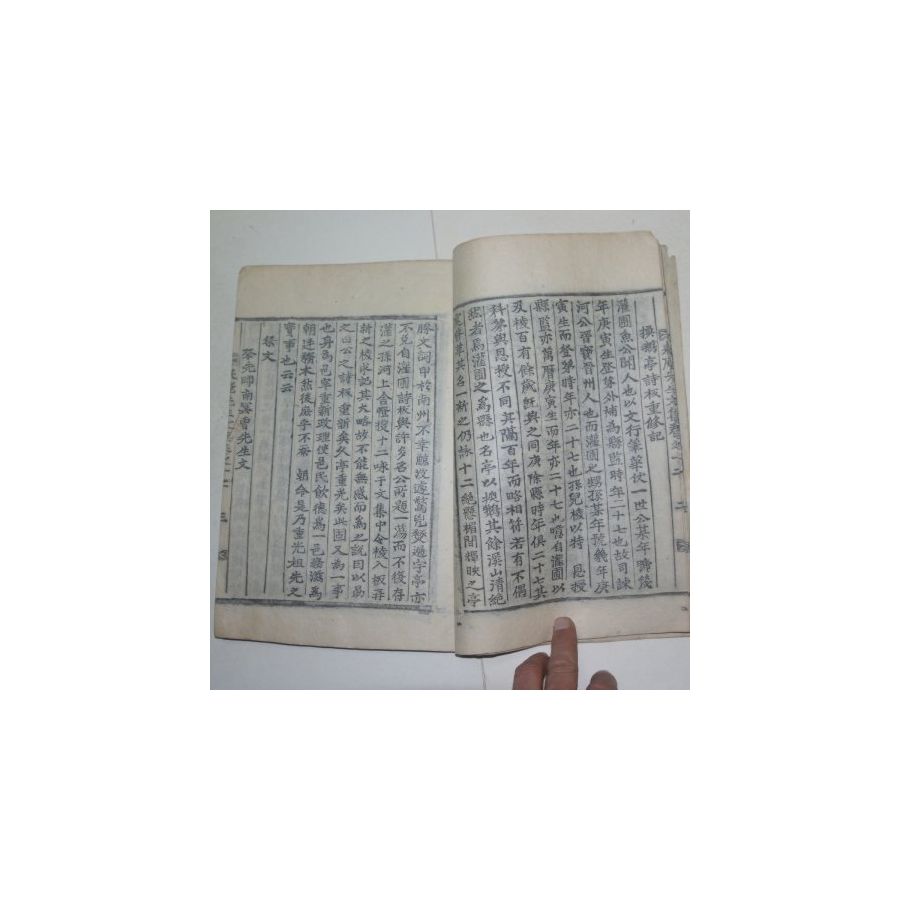 換鵝亭詩板重修記
灌圃魚公聞人也以文行 一世公某年
年庚寅生登第外補爲縣監時年二十七也故司諫
河公晋寶晋州人也而灌圃之甥孫某年號幾年庚
寅生而登第時年亦二十七也孫兒稜以特 恩授
縣監亦萬曆庚寅生而年亦二十七也噫自灌圃以
及稜百有餘歲旣與之同庚除縣時年俱二十七其
科第與恩授不同其隔百年而略相符若有不偶
然者焉灌圃之爲縣也名亭以換鵝其餘溪山清絶
革其名一新之仍詠十二絶縣楣間輝映之亭
勝文詞甲於南州不幸鬱攸遽驚兇燹 亭亦
不免自灌圃詩板與許多名公所題一蕩而不復存
灌之孫河上舍憕授十二咏于文集中令稜入板再
新之稜求記其大略故不能無感而爲之說因以爲
之曰公之詩板重新矣 亭重光矣此固又爲一事
也身爲邑宰重新政理使邑民飮德爲一邑 爲
朝廷 然後庶乎不辱 朝命是乃重光祖先之
實事也云云
祭文
祭先師南冥曺先生文